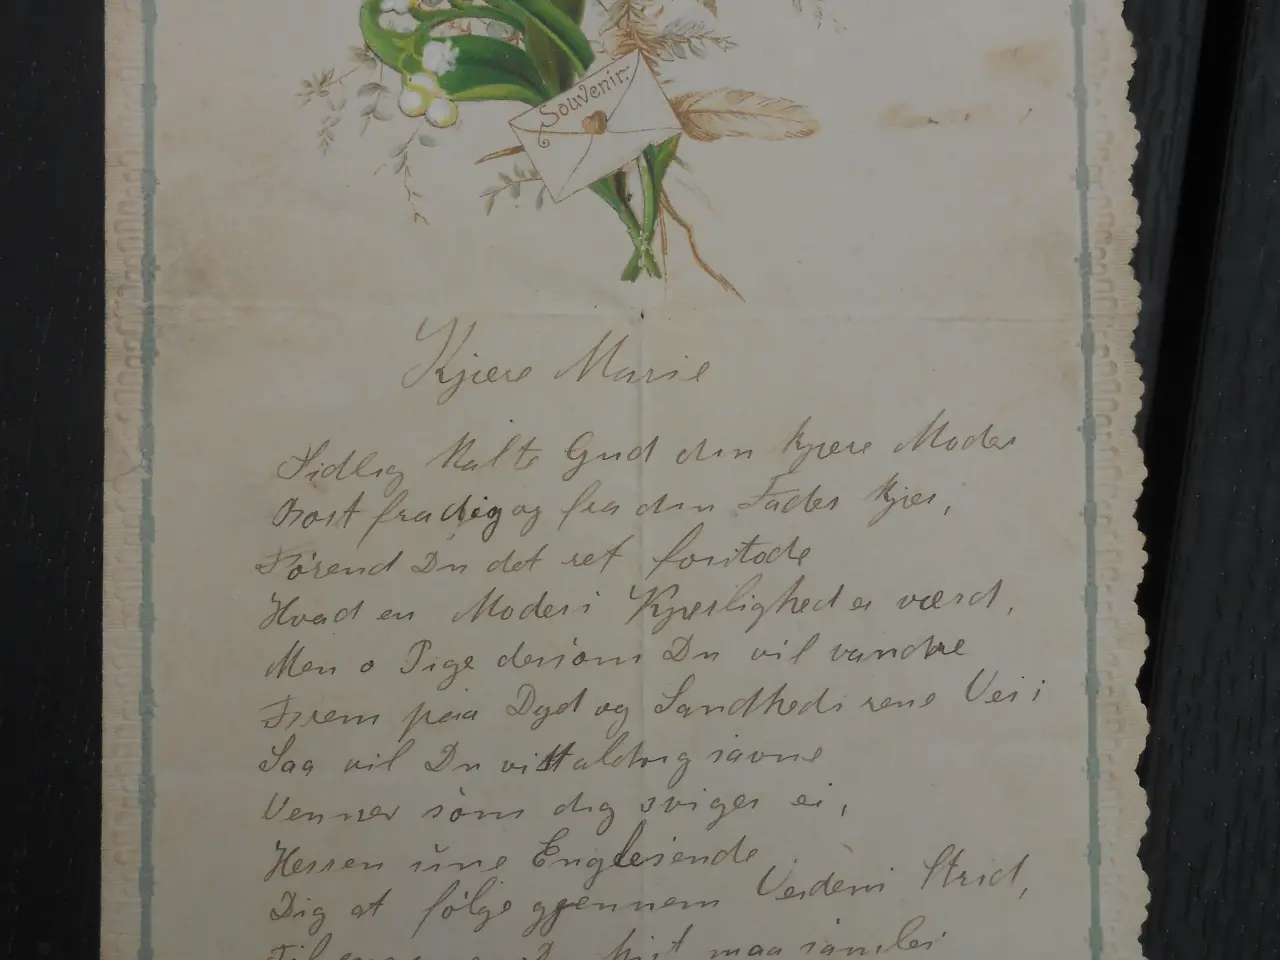 Souvenir.
Kjære Marie
Tidlig kalte Gud den kjære Moder
Bort fra dig og fra den Fader kjær,
Førend Du det ret forstode
Hvad en Moders Kjærlighed er værd,
Men o Pige dersom Du vil vandre
Frem paa Dyd og Sandheds rene Vei
Saa vil Du vist aldrig savne
Venner som dig sviger ei,
Herren sine Engle sende
Dig at følge gjennem Verdens Strid,
Til maa samles